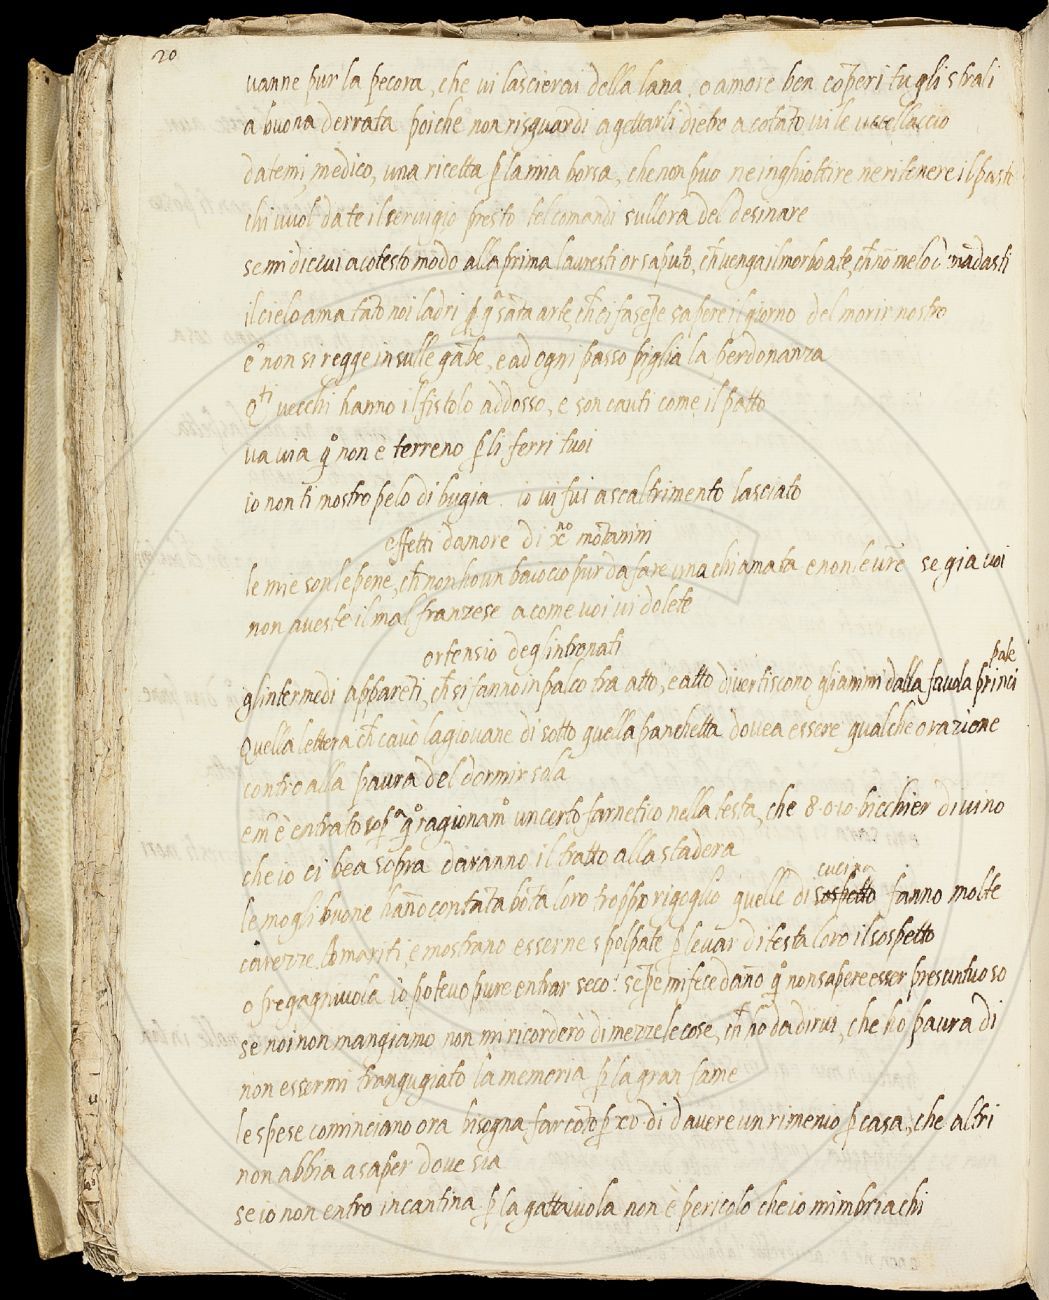 20
vanne pur la pecora, che vi lascierai della lana, o amore ben cõperi tu gli strali
a buona derrata poiche non risguardi a gettarli dietro a cotãto vile uccellaccio
datemi, medico, una ricetta p la mia borsa, che non puo ne inghiottire ne ritenere il pasto
chi vuol da te il servigio presto tel comandi sull ora del desinare
se mi dicevi a cotesto modo alla prima lavresti or saputo, ch venga il morbo a te, ch nõ me lo mãdasti
il cielo ama tãto noi ladri p q sãta arte, ch ci fa sẽpre sapere il giorno del morir nostro
e non si regge in sulle gãbe, e ad ogni passo piglia la perdonanza
Qti vecchi hanno il fistolo addosso, e son cauti come il
va via qo non e terreno p li ferri tuoi
io non ti mostro pelo di bugia io vi fui ascaltrimento lasciato
effetti damore di mõtanini
le mie son le pene, ch non ho un baiocco pur da fare una chiamata e non le vre se gia voi
non aveste il mal franzese a come voi vi dolete
ortensio deglintronati
glintermedi apparẽti, ch si fanno in palco tra atto, e atto divertiscono gli animi dalla favola princi
pale
Quella lettera ch cavò la giovane di sotto quella panchetta dovea essere qualche orazione
contro alla paura del dormir sola
e mè entrato sopa qo ragionamo un certo farnetico nella testa, che 8. o 10 bicchier di vino
che io ci bea sopra daranno il tratto alla stadera
le mogli buone hãno contãta bõta loro troppo rigoglio quelle di sospetto fanno molte
cucina
carezze a mariti, e mostrano esserne spolpate p levar di testa loro il sospetto
o fregagnuola io potevo pure entrar seco: sẽpre mi fece dãno qo non sapere esser presuntuoso
se noi non mangiamo non mi ricorderò di mezze le cose, ch hò da dirvi, che ho paura di
non essermi trangugiato la memoria p la gran fame
le spese cominciano ora bisogna far cõto p xo di davere un rimenio p casa, che altri
non abbia a saper dove sia
se io non entro in cantina p la gattaiuola non e pericolo che io mimbriachi